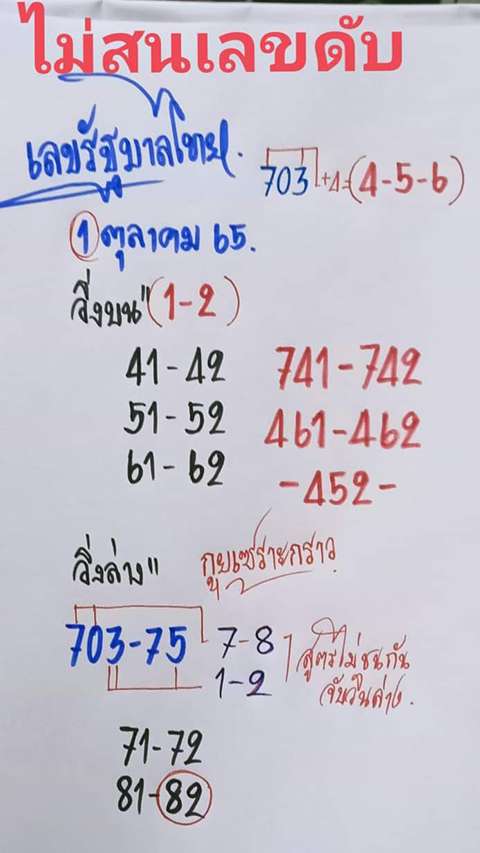 ไม่สนเลขดับ
เลขรัฐบาลไทย.
703 +4=(4-5-6)
1 ตุลาคม 65.
วิ่งบน" (1-2)
41-42 741-742
51-52 461-462
61-62 -452-
วิ่งล่าง"
703-75 7-8
1-2
สูตรไม่ชนกัน
จับวิ่นล่าง.
71-72
81-82